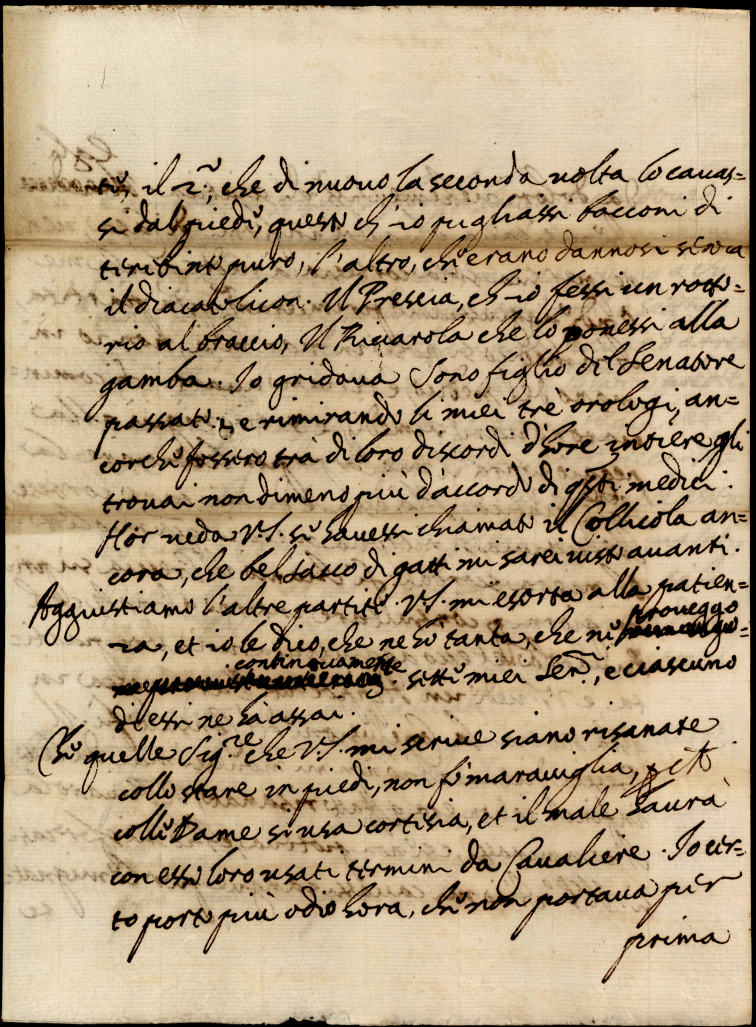 tè, il 2.°, che di nuovo la seconda uolta lo cauas=
si dal piede, questi ch'io pigliassi bocconi di
teribinto puro, l'altro, ch'erano dannosi senza
il diacatolicon. Il Prescia, ch'io fessi un rotto=
rio al braccio, Il Riuarola che lo ponessi alla
gamba. Io gridaua Sono figlio del Senatore
passato, e rimirando li miei trè orologi, an=
corche fossero trà di loro discordi d'hore intiere gli
trouai nondimeno più d'accordo di q.sti medici.
Hor ueda V.S. se hauessi chiamato il Collicola an=
cora, che bel sacco di gatti mi sarei uisto auanti.
Aggiustiamo l'altre partite. V.S. mi esorta alla patien=
za, et io le dico, che ne hò tanta, che ne proueggo
continuamente sette miei Ser.ri, e ciascuno
di essi ne hà assai.
Che quelle Sig.re che V.S. mi scriue siano risanate
collo stare in piedi, non fò marauiglia,
colle Dame si usa cortesia, et il male haurà
con esse loro usati termini da Caualiere. Io cer=
to porto più odio hora, che non portaua per
prima